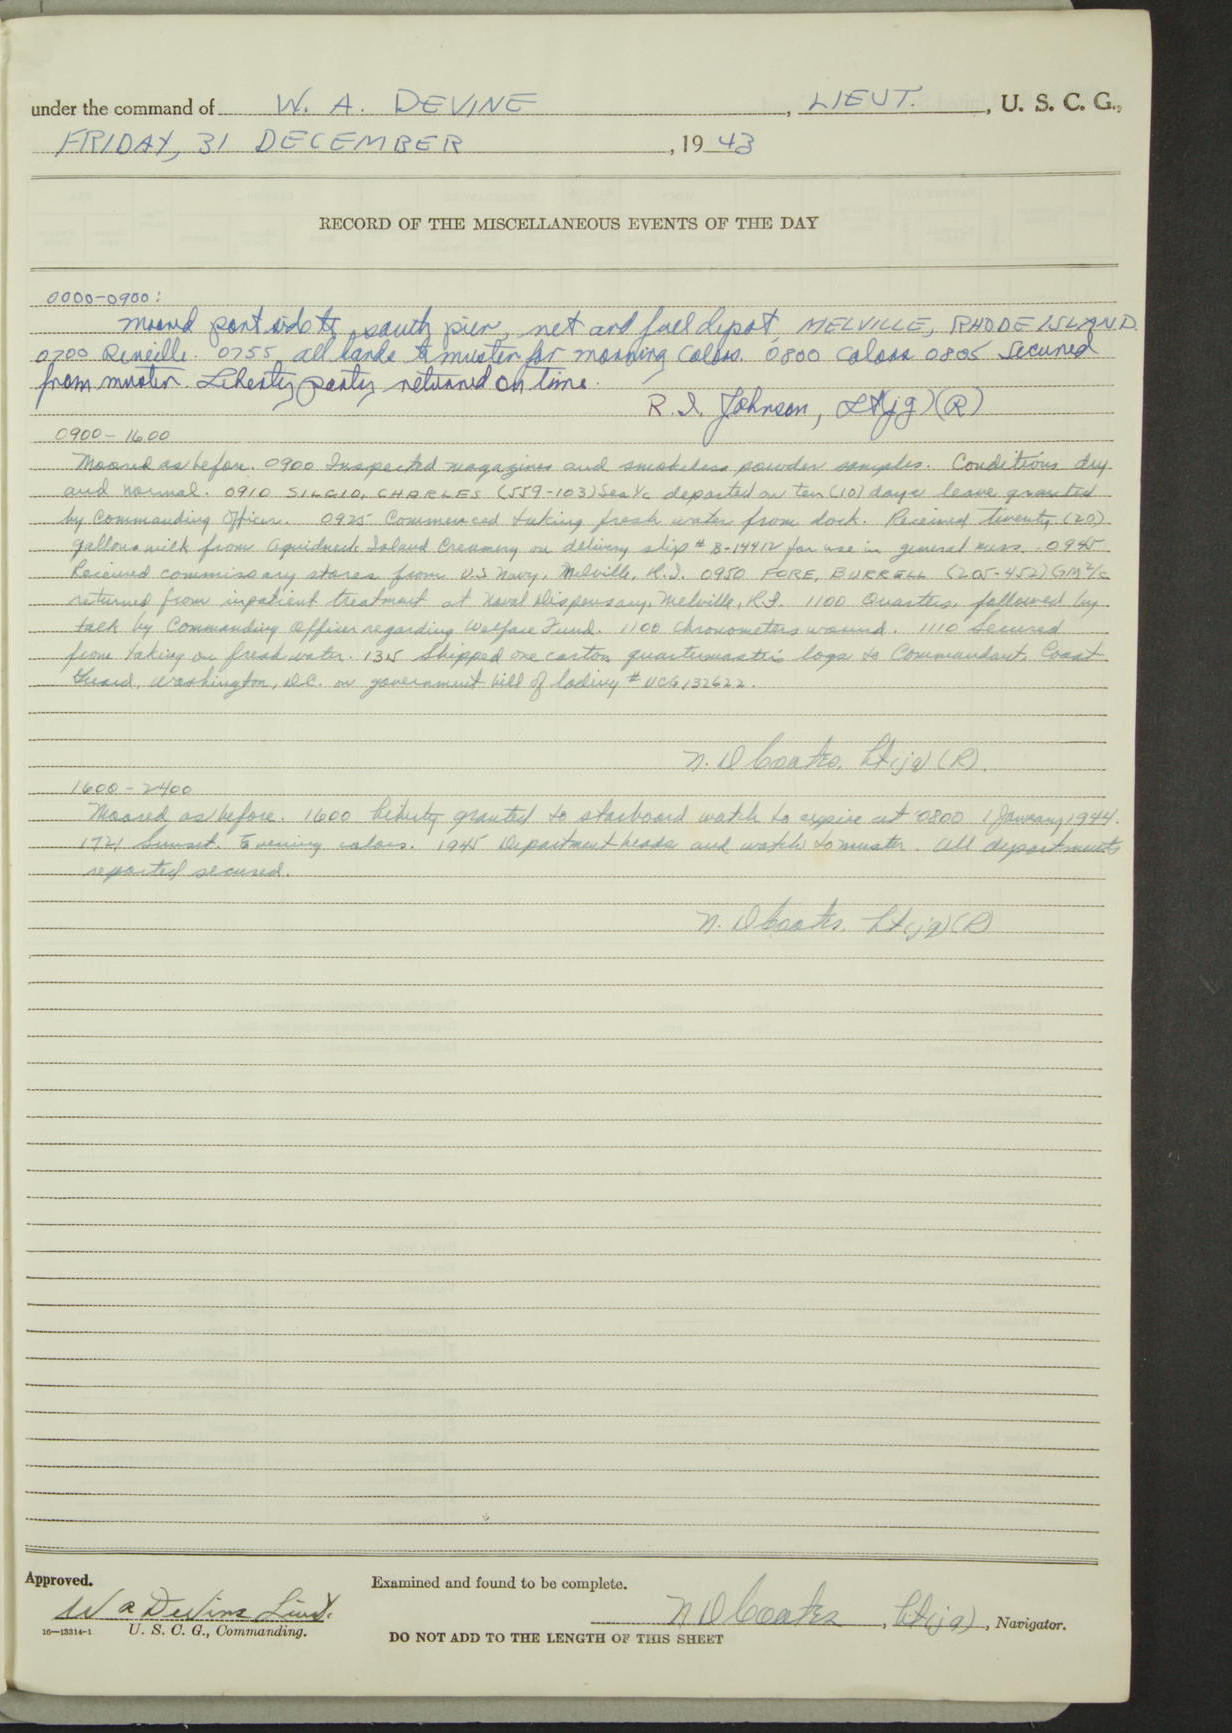 under the command of W. A. DEVINE, LIEUT., U. S. C. G.,
FRIDAY, 31 DECEMBER, 1943
RECORD OF THE MISCELLANEOUS EVENTS OF THE DAY
0000-0900:
Moored port side to, south pier, net and fuel depot, MELVILLE, RHODE ISLAND.
0700 Reveille. 0755 all hands to muster for morning colors. 0800 colors 0805 Secured
from muster. Liberty party returned on time.
R. I. Johnson, Lt(jg)(R)
0900-1600
Moored as before. 0900 Inspected magazines and smokeless powder samples. Conditions dry
and normal. 0910 CHARLES (559-103) Sea 1/c departed on ten (10) days leave granted
by Commanding Officer. 0925 Commenced taking fresh water from dock. Received twenty (20)
gallons milk from Aquidneck Island Creamery on delivery slip # B-14412 for use in general mess. 0945
Received commissary stores from U.S Navy, Melville, R.I. 0950 FORE, BURRELL (205-452) GM2/c
returned from inpatient treatment at Naval Dispensary, Melville, R.I. 1100 Quarters, followed by
talk by Commanding Officer regarding Welfare Fund. 1100 Chronometers wound. 1110 Secured
from taking on fresh water. 1315 Shipped one carton quartermaster's logs to Commandant, Coast
Guard, Washington, D.C. on government bill of lading # UCG132622.
N. D Coates, Lt(jg)(R).
1600-2400
Moored as before. 1600 liberty granted to starboard watch to expire at 0800 1 January 1944.
1721 Sunset. Evening colors. 1945 Department heads and watch to muster. All departments
reported secured.
N. D Coates, Lt(jg)(R)
Approved.
Examined and found to be complete.
W a Devine Lieut.
N D Coates, Lt(jg), Navigator.
16—13314-1 U. S. C. G., Commanding.
DO NOT ADD TO THE LENGTH OF THIS SHEET